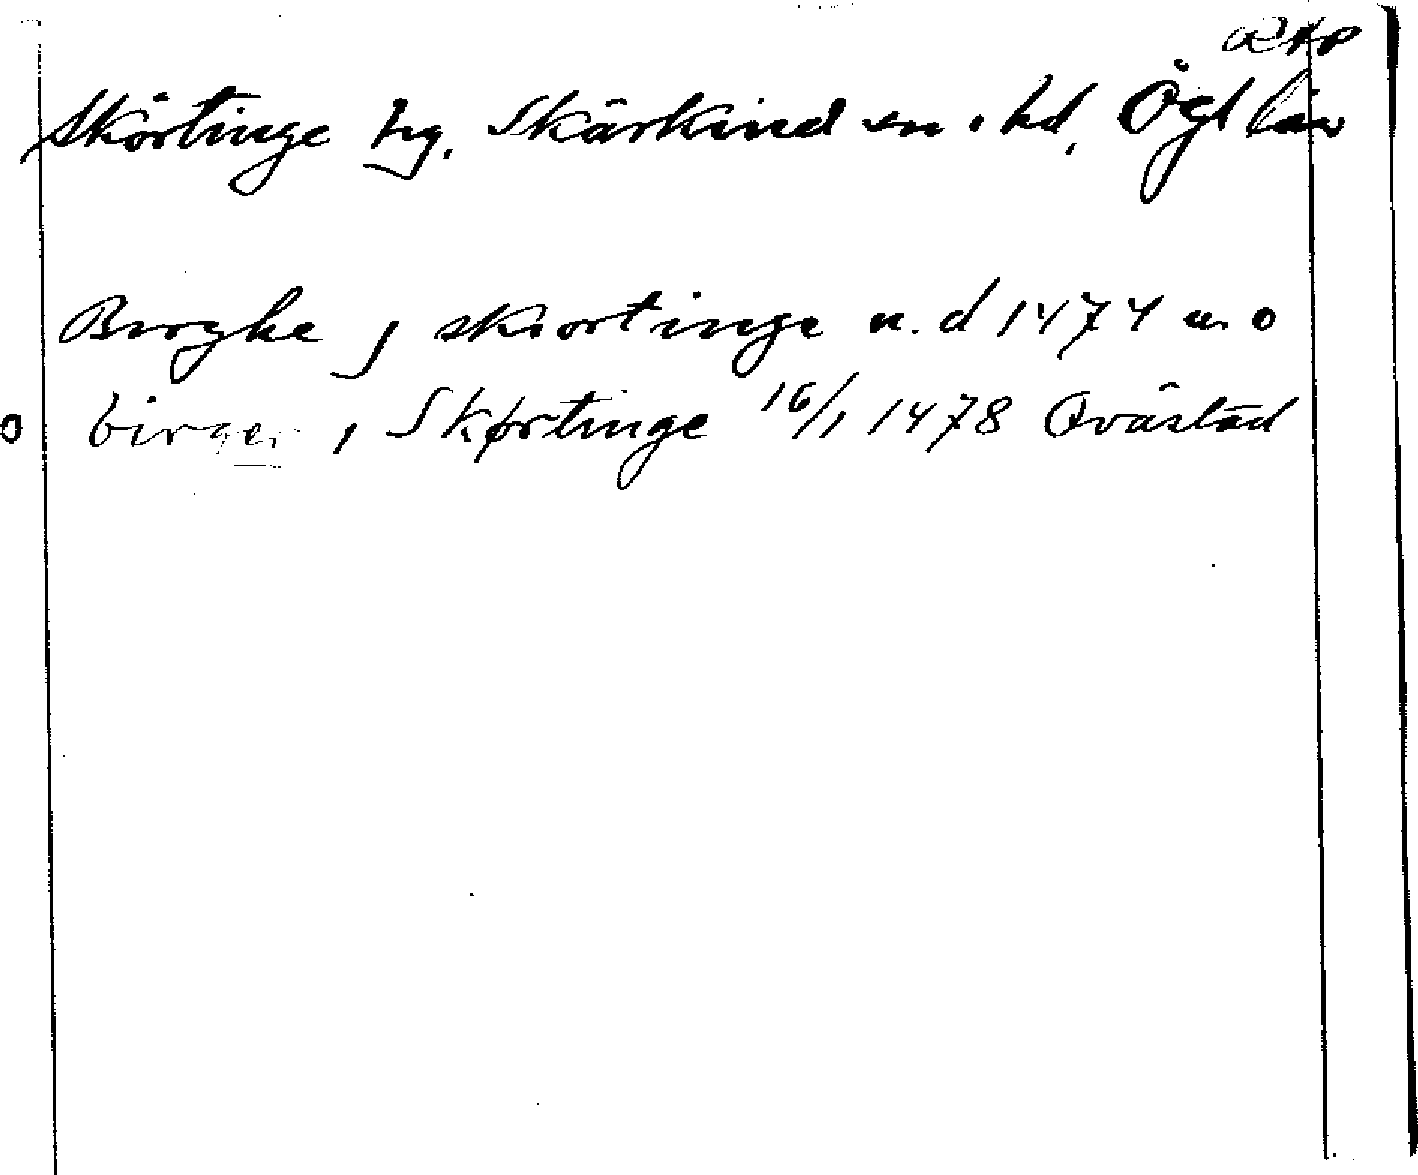 RAP
Skörtinge hg. Skärkind sn o. hd, Ögl län
Broghe j skiortinge u.d 1474 u. o
o birger i Skørtinge 16/1 1478 Qvästad